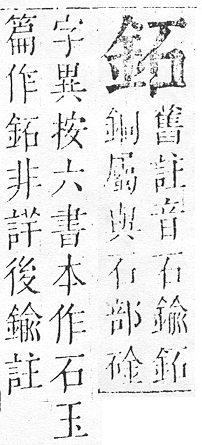 鉐
舊註音石鍮鉐
銅屬與石部硂
字異按六書本作石玉
篇作鉐非詳後鍮註